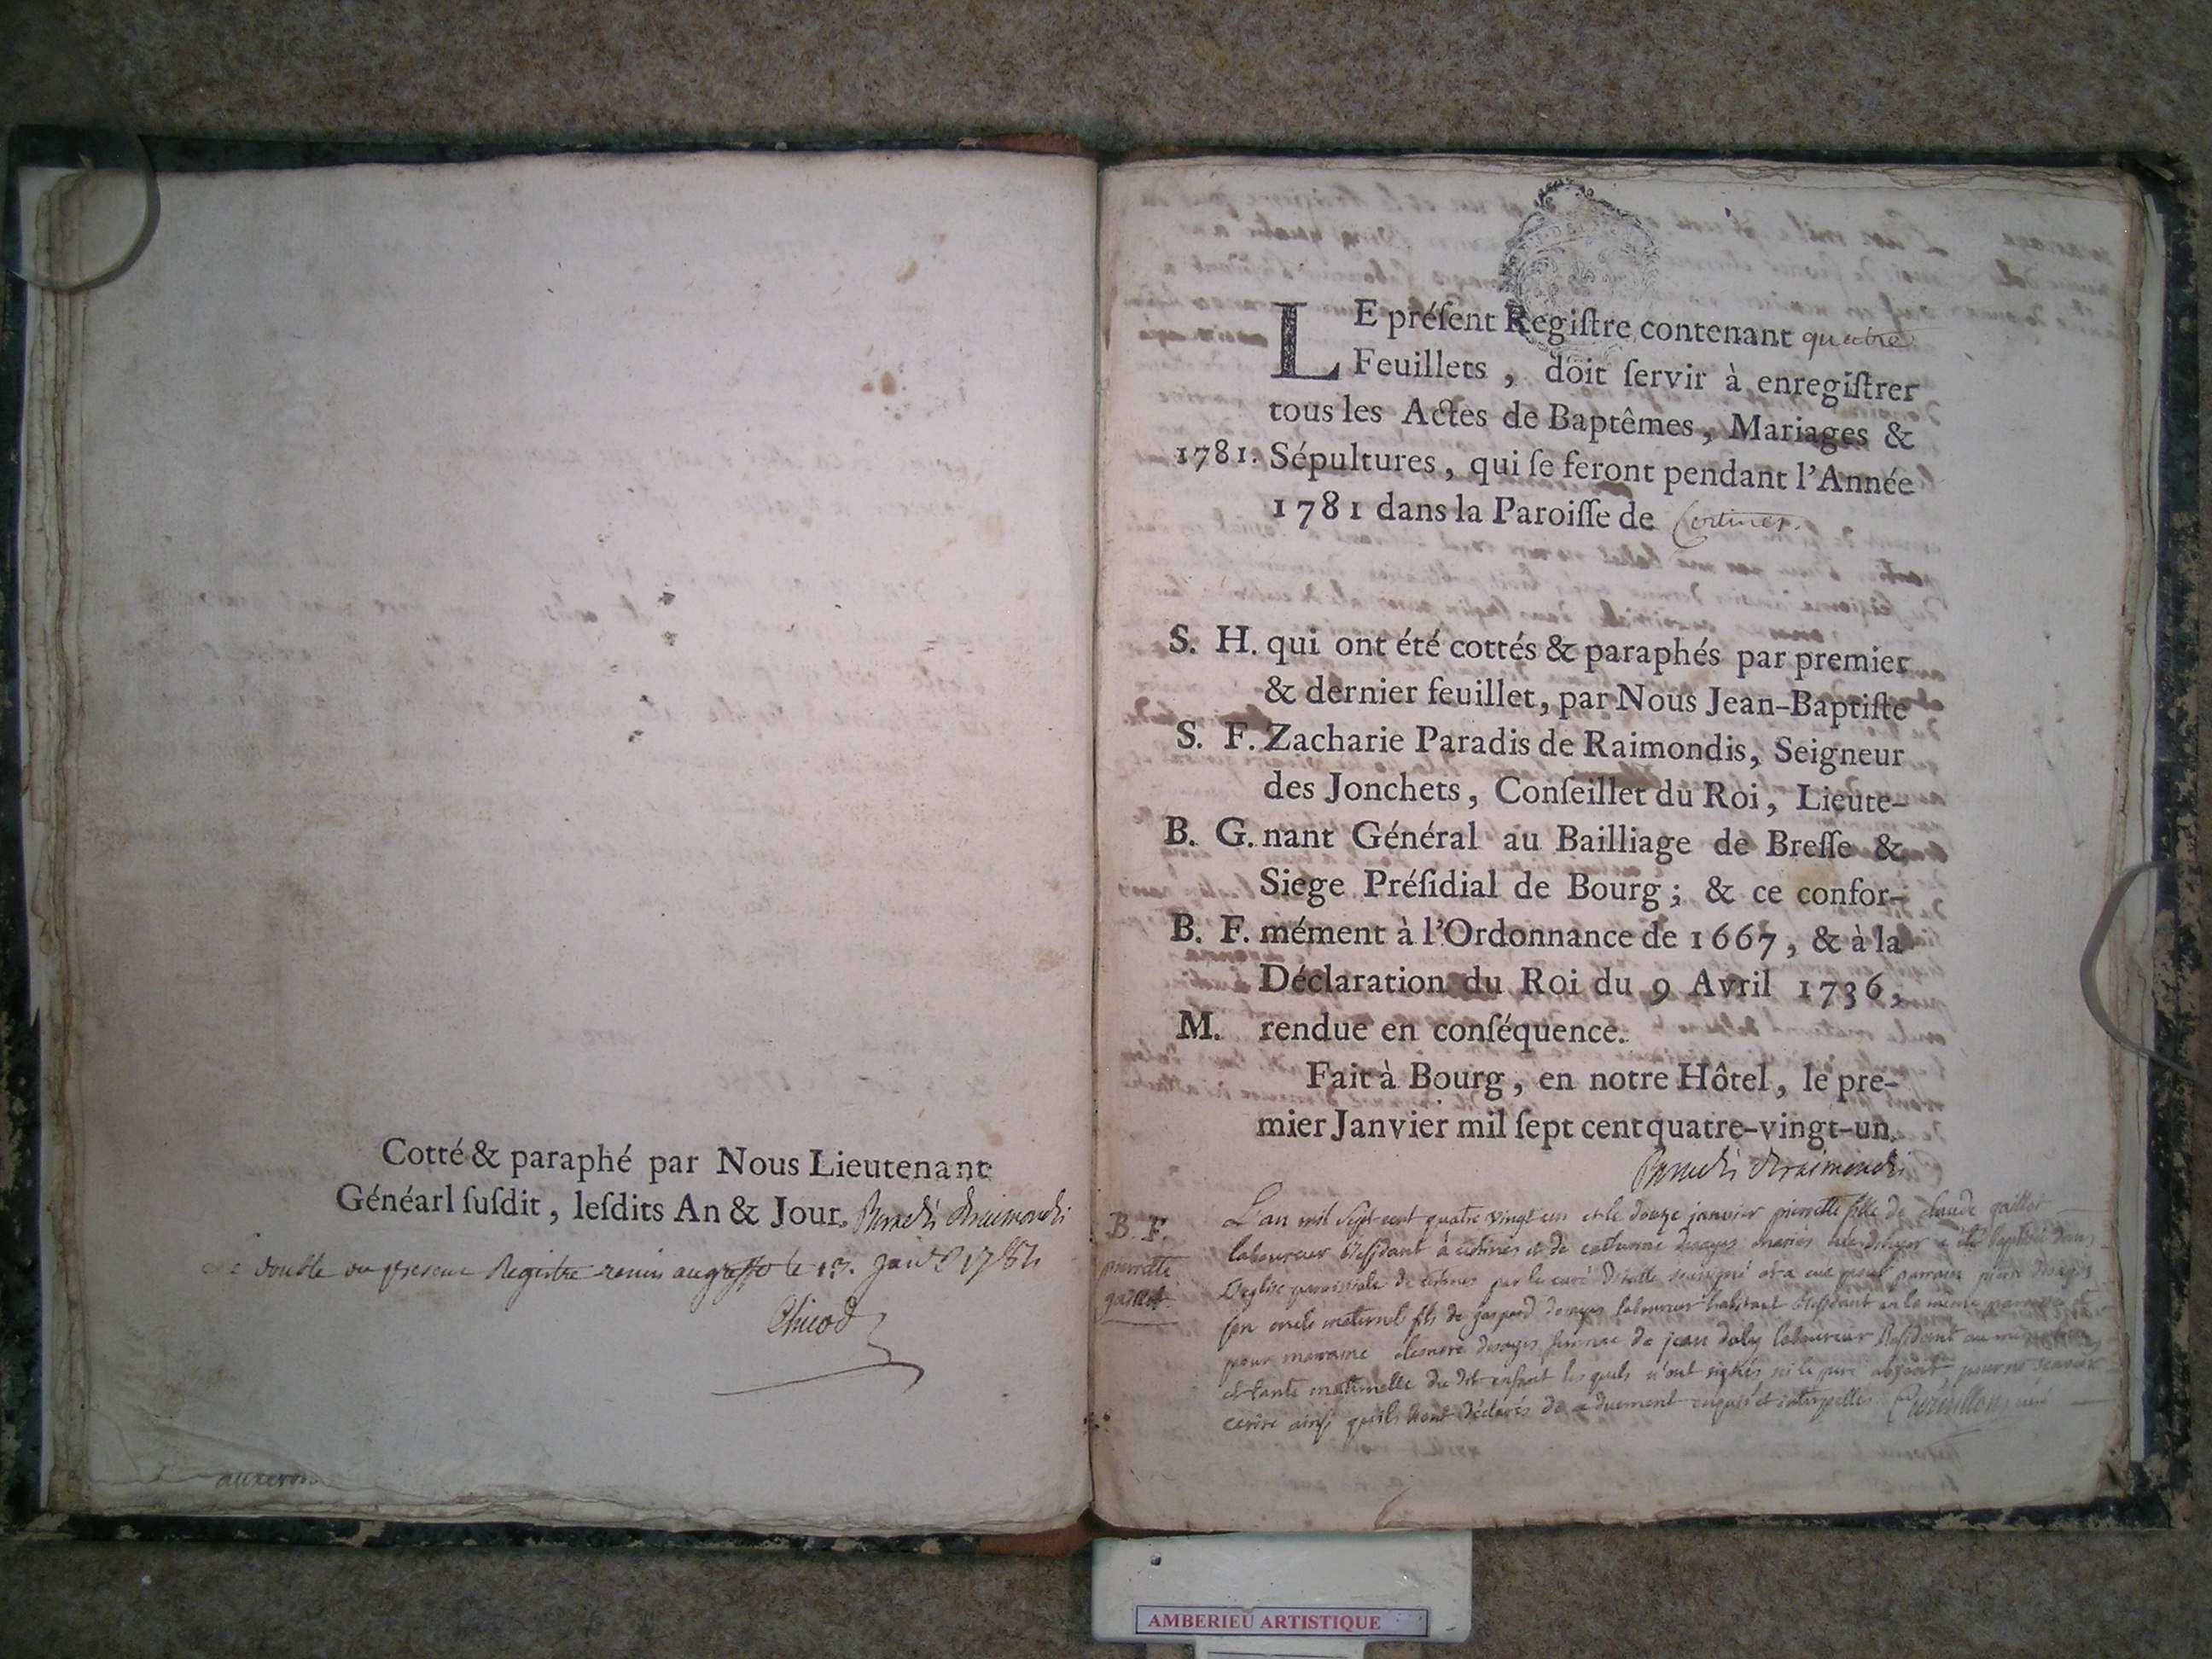 Cotté & paraphé par Nous Lieutenant
Génáarl ſuſdit, leſdits An & Jour.
double du present Registre remis au greffe le 13. Janv.
auxeron
LE préſent Regiſtre contenant quatre
Feuillets, doit ſervir à enregiſtrer
tous les Actes de Baptêmes, Mariages &
1781. Sépultures, qui ſe feront pendant l'Année
1781 dans la Paroiſſe de Certines.
S. H. qui ont été cottés & paraphés par premier
& dernier feuillet, par Nous Jean-Baptiſte
S. F. Zacharie Paradis de Raimondis, Seigneur
des Jonchets, Conſeiller du Roi, Lieute-
B. G. nant Général au Bailliage de Breſſe &
Siege Préſidial de Bourg; & ce confor-
B. F. mément à l'Ordonnance de 1667, & à la
Déclaration du Roi du 9 Avril 1736,
M. rendue en conſéquence.
Fait à Bourg, en notre Hôtel, le pre-
mier Janvier mil ſept cent quatre-vingt-un.
Paradis de Raimondis
B. F.
pierrette
L'an mil sept cent quatre vingt un et le douze janvier pierrette fille de claude
laboureur Residant à certines et de catherine mariés a été baptisée dans
L'eglise paroissiale de certines par le curé soussigné et a eu pour parrain pierre
son oncle maternel fils de gaspard laboureur habitant Residant en la même paroisse et
pour marraine femme de jean laboureur Residant au
et tante maternelle du dit enfant les quels n'ont signés ni le pere absent, pour ne scavoir
ecrire ainsi qu'ils l'ont déclarés de ce duement enquis et interpellés
AMBERIEU ARTISTIQUE